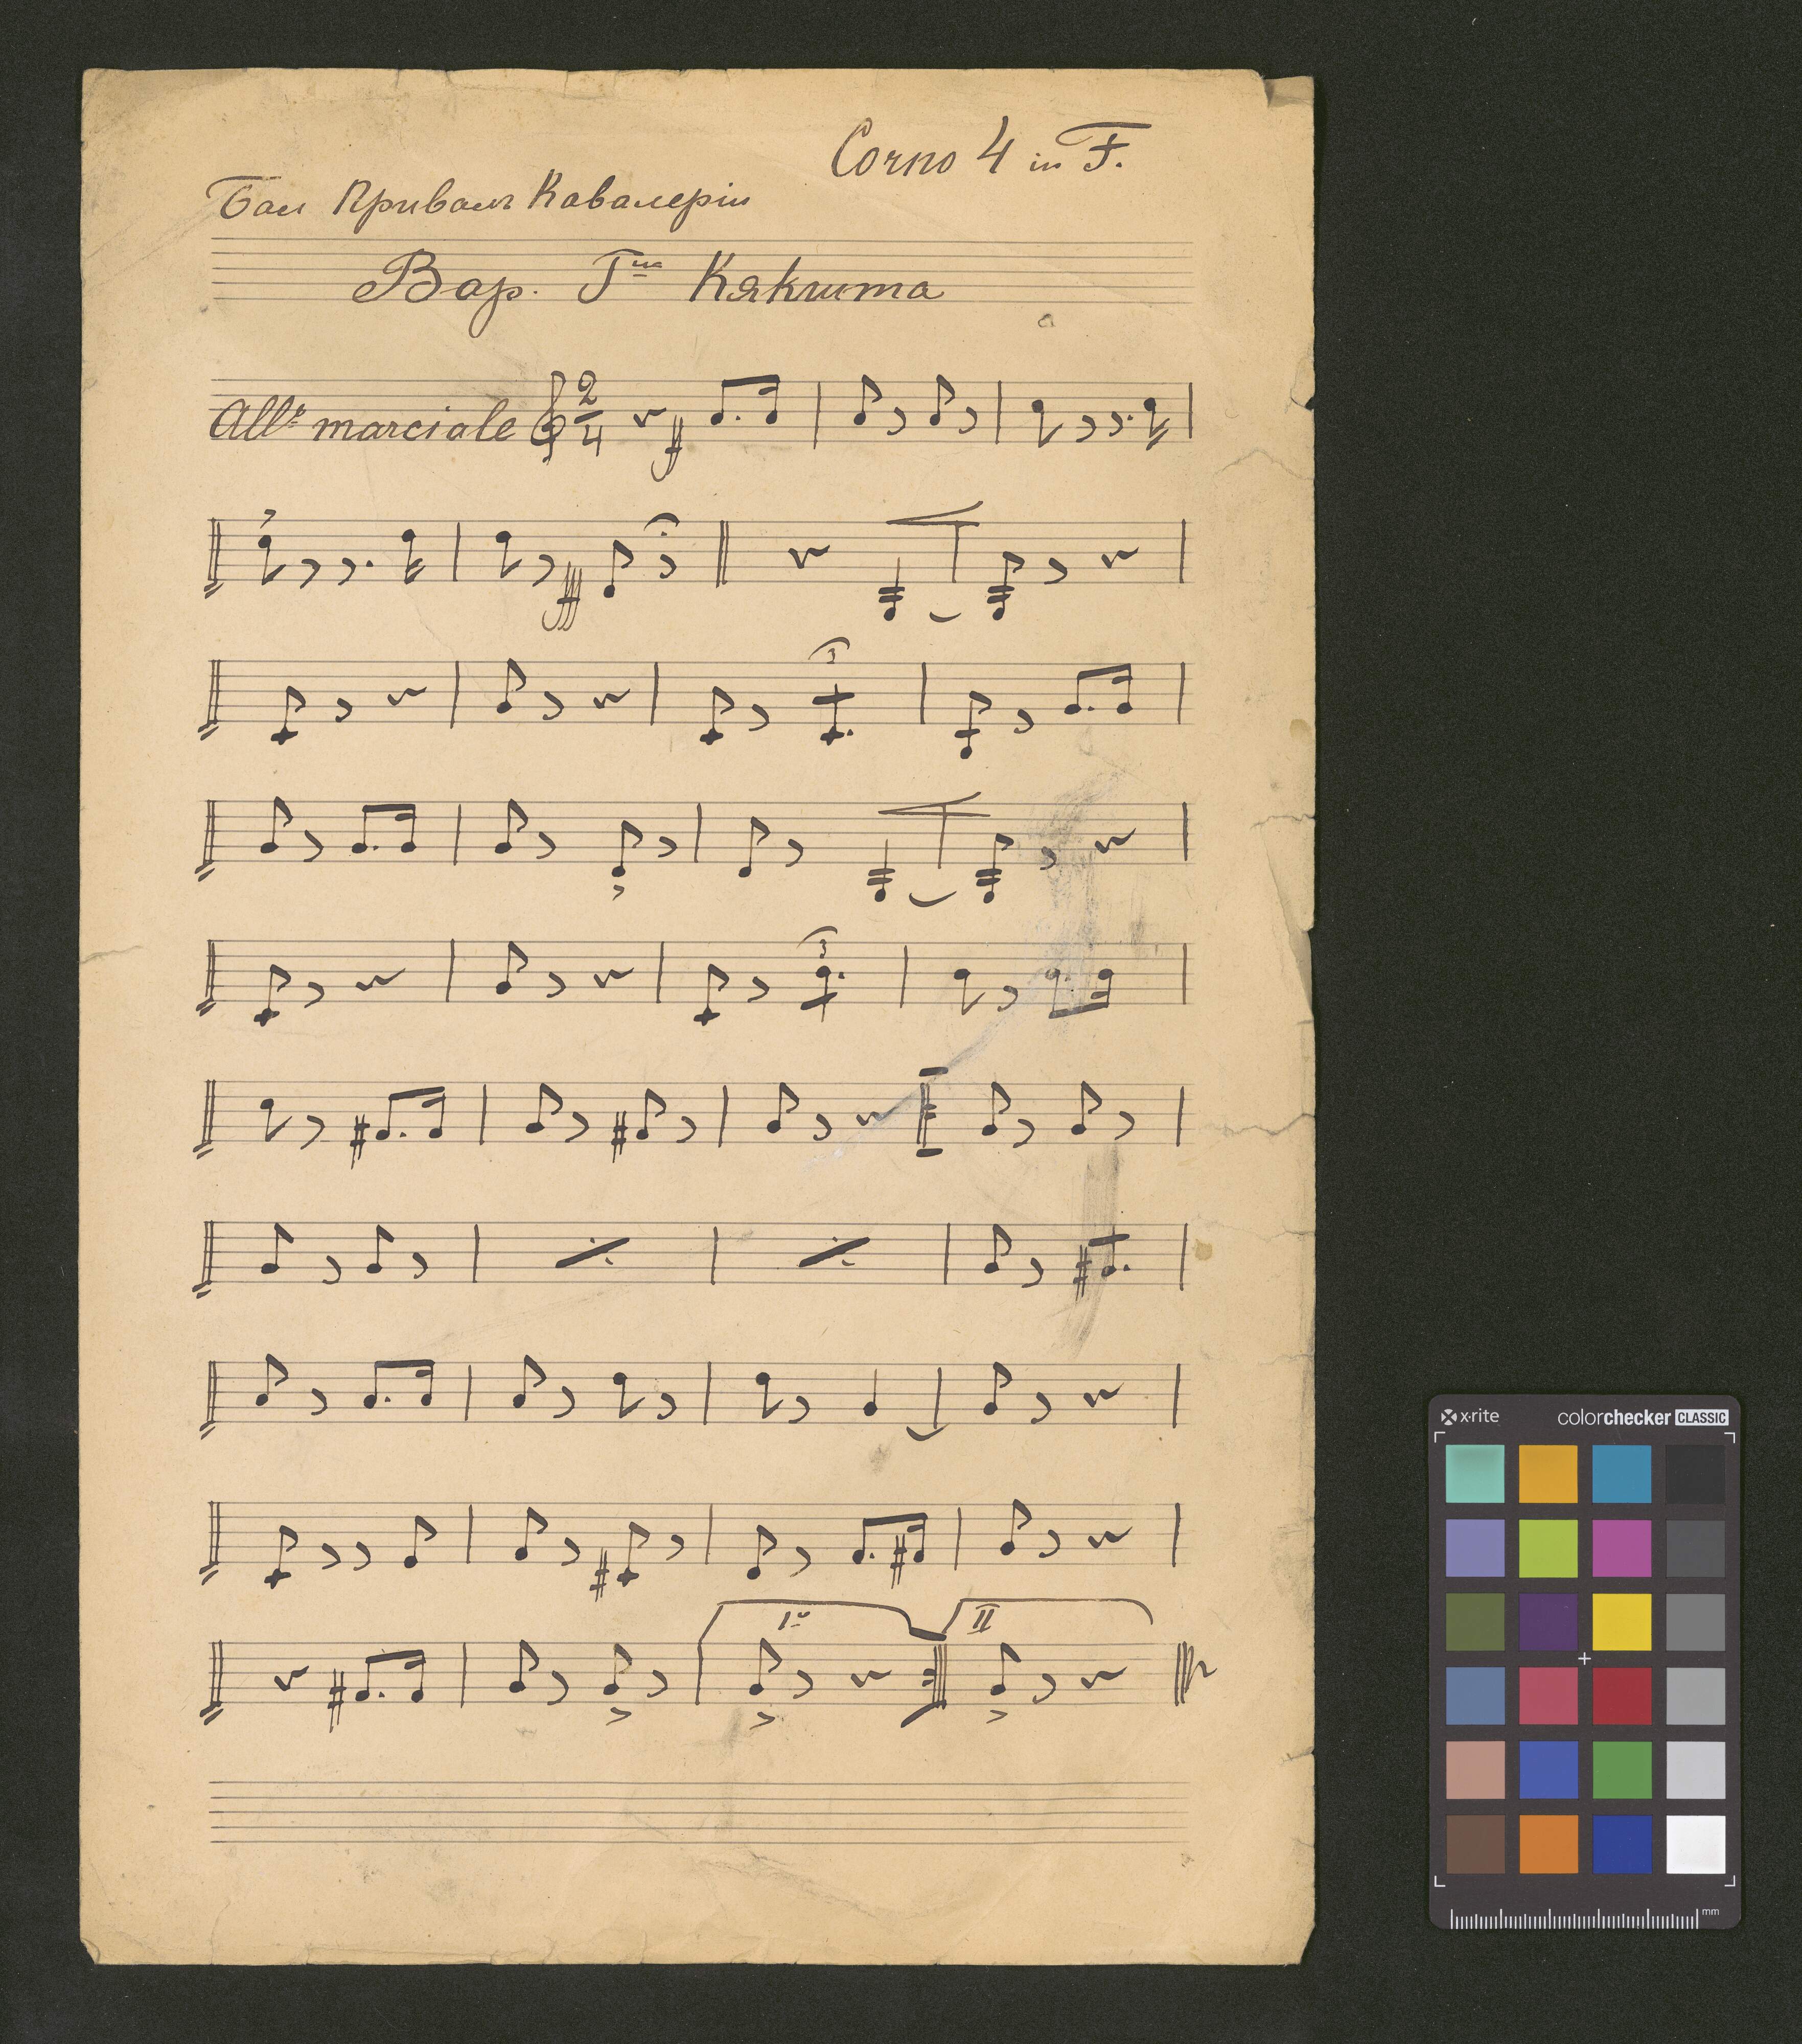 Corno 4 in F.
Бал Привалъ Кавалеріи
Вар. Г-на Кякшта
All° marciale 2/4 ff
fff
3
3
I° II
x·rite colorchecker CLASSIC
mm